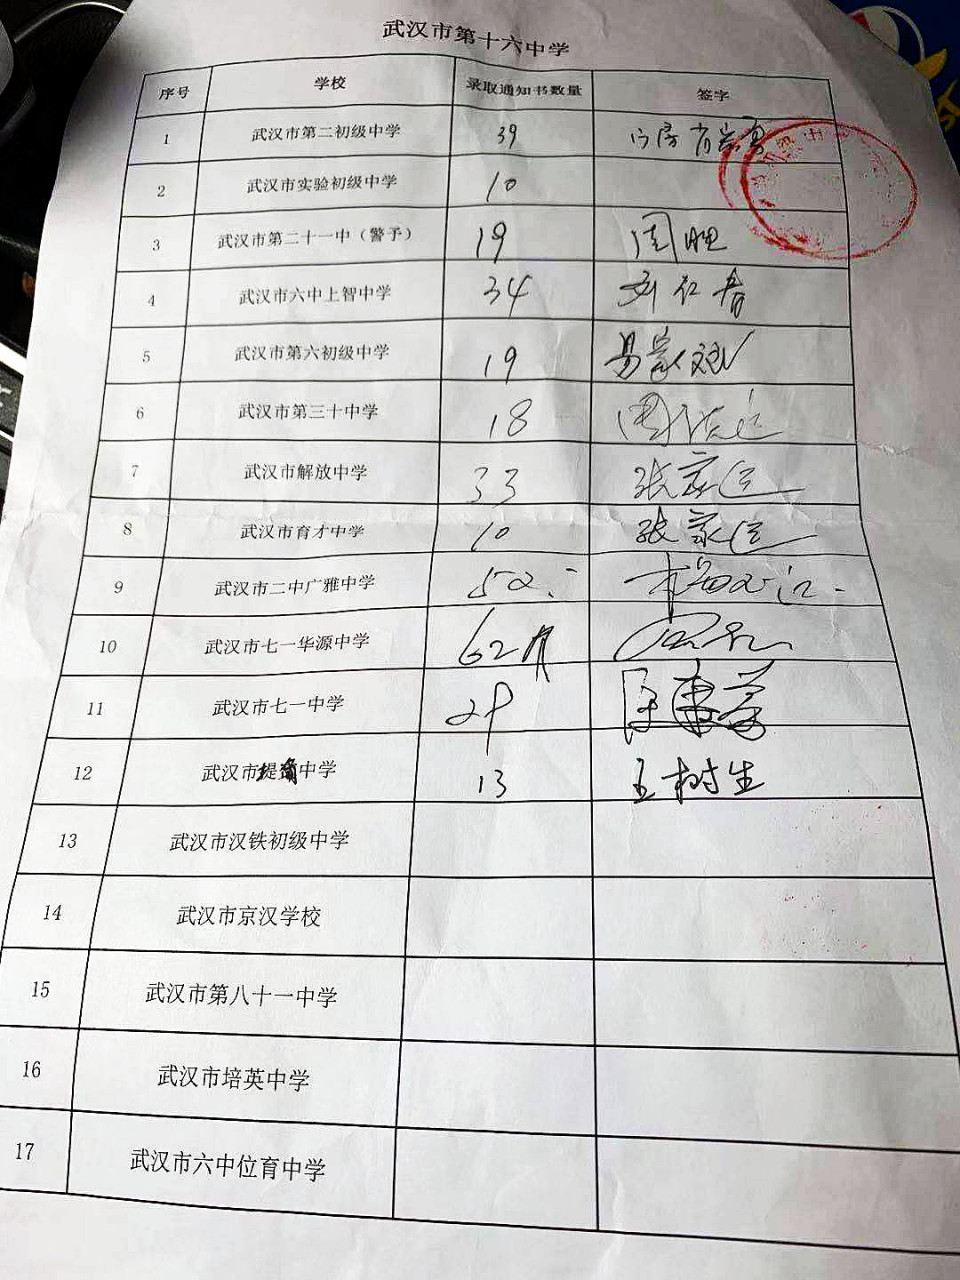 武汉市第十六中学
序号 学校 录取通知书数量 签字
1 武汉市第二初级中学 39
2 武汉市实验初级中学 10
3 武汉市第二十一中（警予） 19 周胜
4 武汉市六中上智中学 34
5 武汉市第六初级中学 19 易家斌
6 武汉市第三十中学 18
7 武汉市解放中学 33 张家臣
8 武汉市育才中学 10 张家臣
9 武汉市二中广雅中学
10 武汉市七一华源中学 62
11 武汉市七一中学 29
12 武汉市堤角中学 13 王树生
13 武汉市汉铁初级中学
14 武汉市京汉学校
15 武汉市第八十一中学
16 武汉市培英中学
17 武汉市六中位育中学